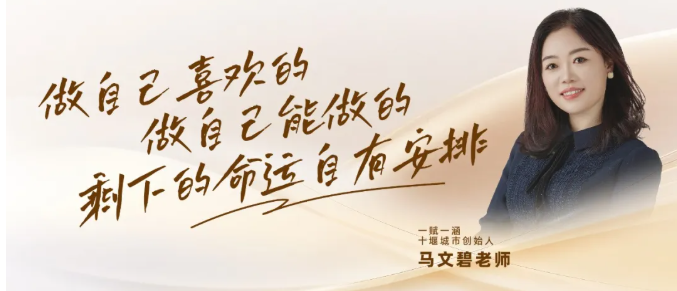 做自己喜欢的
做自己能做的
剩下的命运自有安排
一赋一涵
十堰城市创始人
马文碧老师